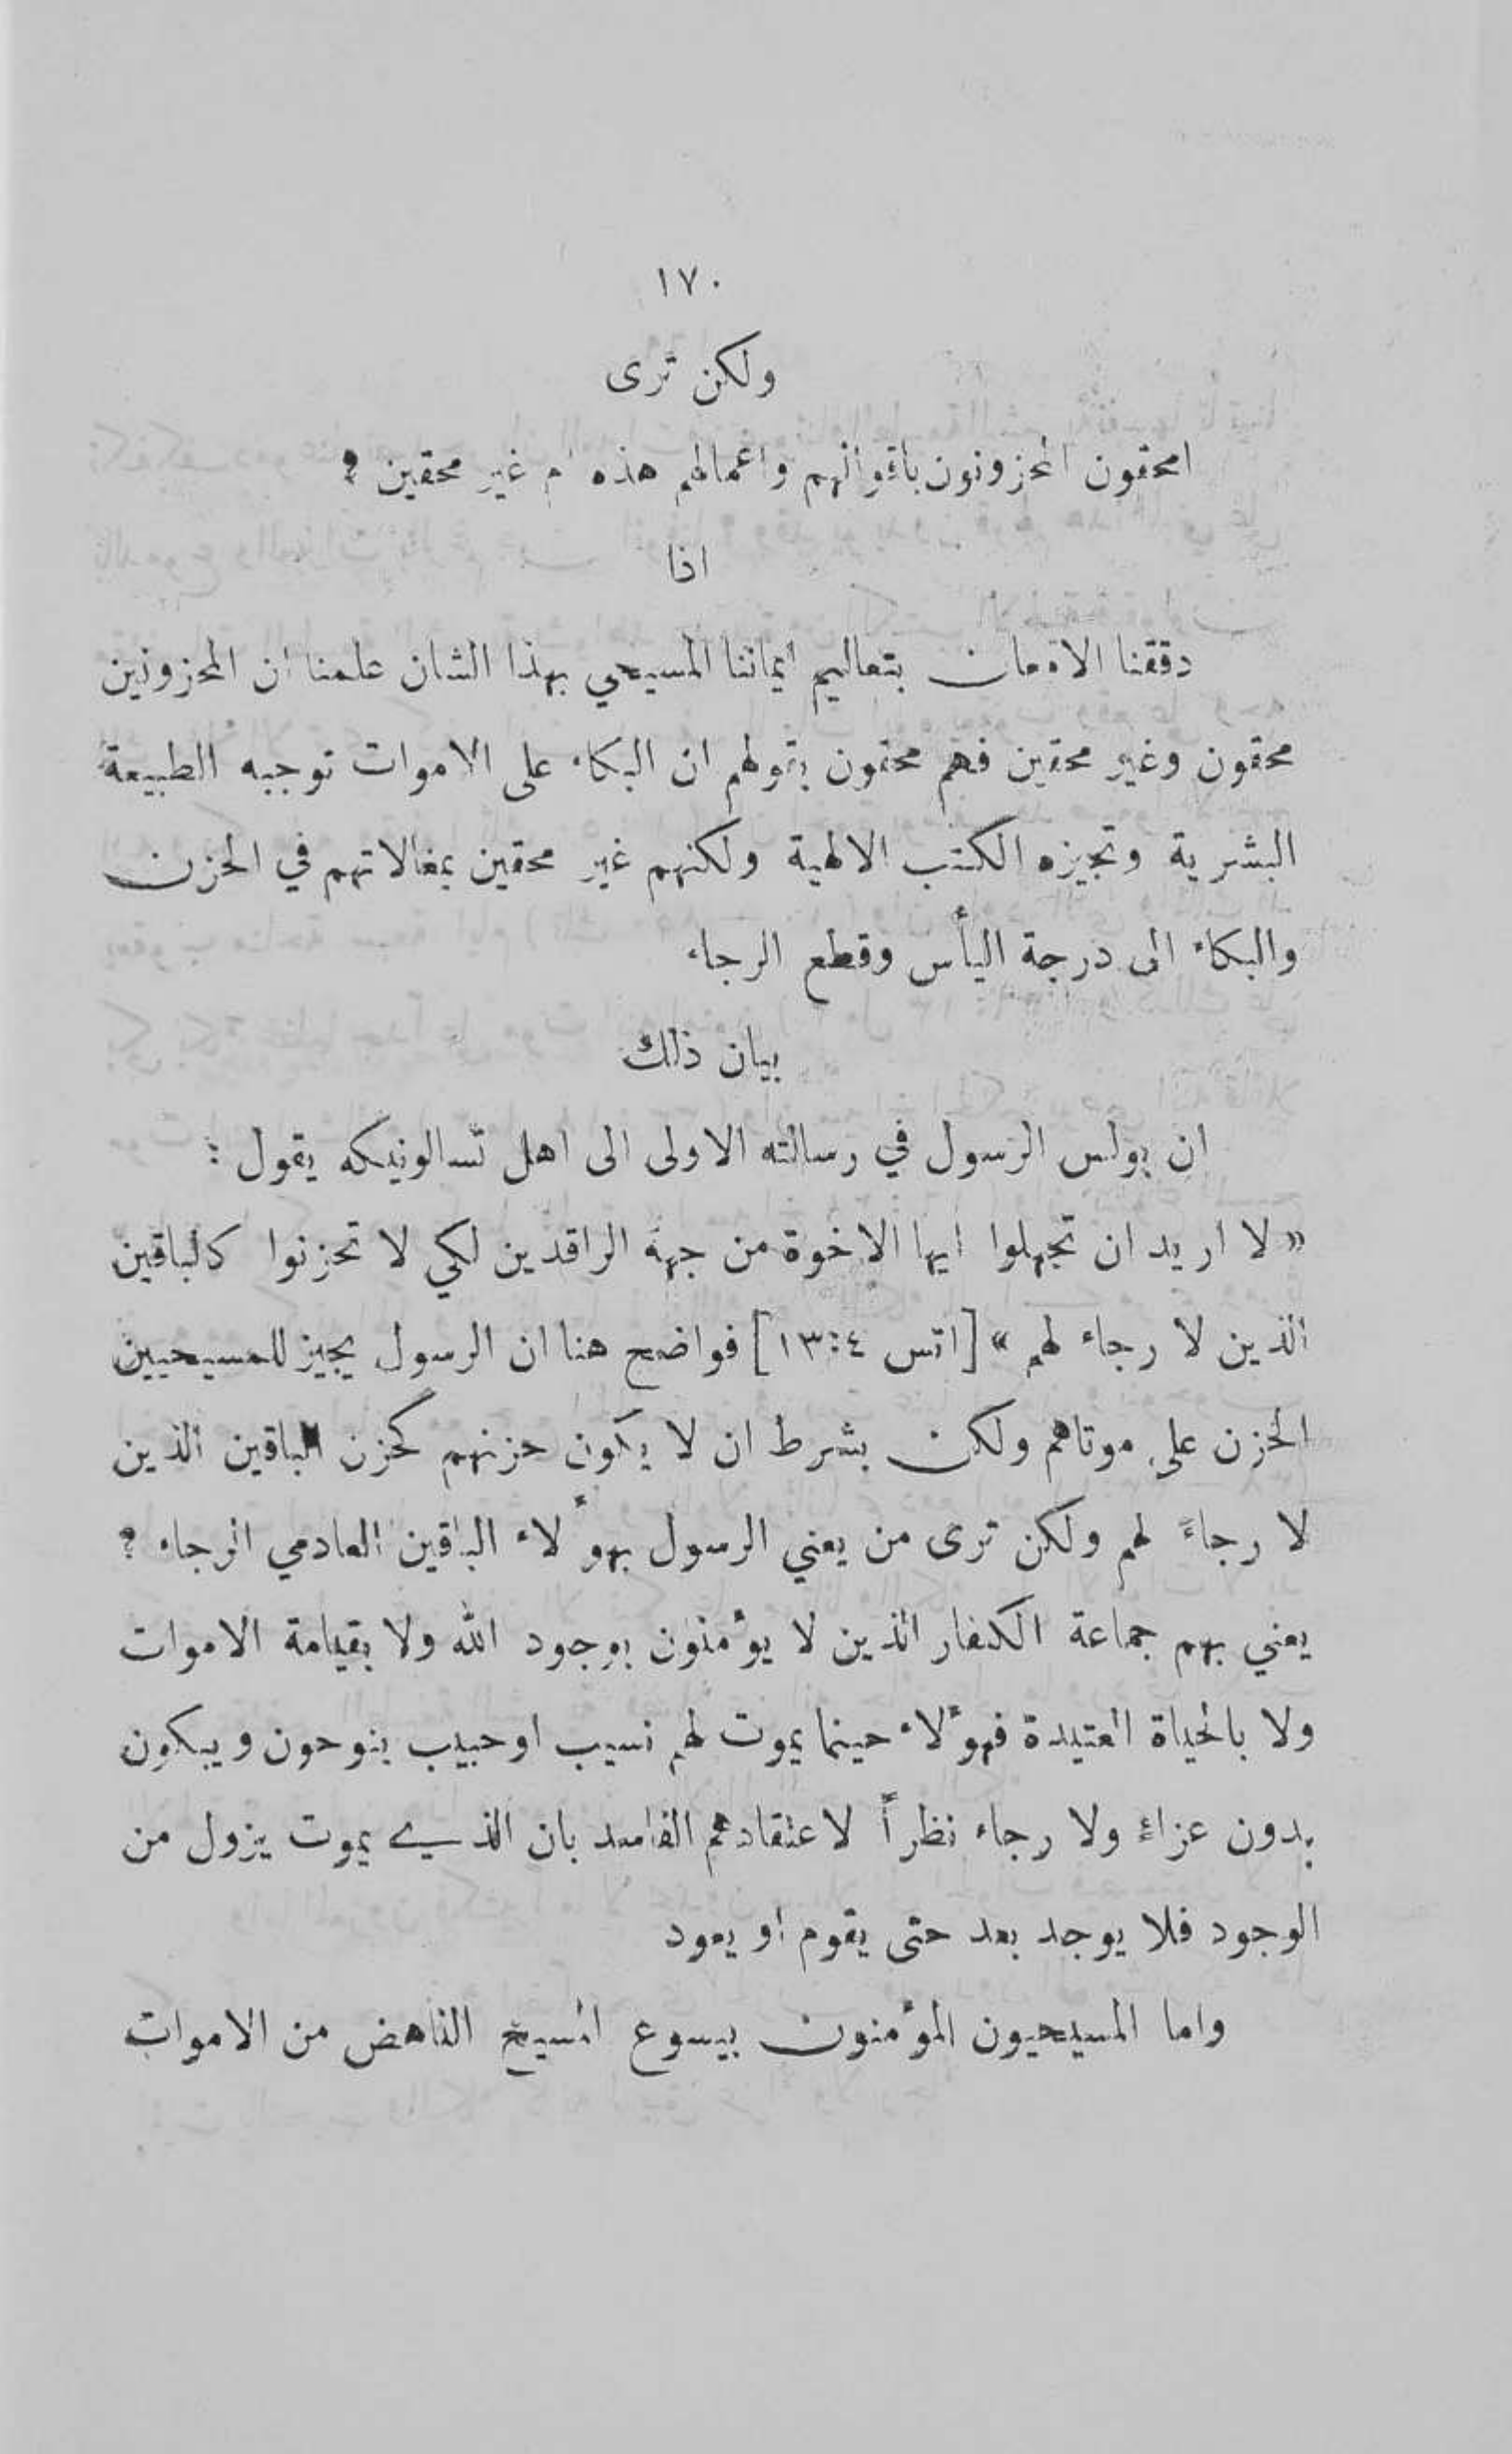 ١٧٠
ولكن ترى
امحقون المحزونون باقوالهم واعمالهم هذه ام غير محقين ؟
اذا
دققنا الامعان بتعاليم ايماننا المسيحي بهذا الشان علمنا ان المحزونين
محقون وغير محقين فهم محقون بقولهم ان البكاء على الاموات توجبه الطبيعة
البشرية وتجيزه الكتب الالهية ولكنهم غير محقين بمغالاتهم في الحزن
والبكاء الى درجة اليأس وقطع الرجاء
بيان ذلك
ان بولس الرسول في رسالته الاولى الى اهل تسالونيكه يقول :
« لا اريد ان تجهلوا ايها الاخوة من جهة الراقدين لكي لا تحزنوا كالباقين
الذين لا رجاء لهم » [اتس ٤:١٣] فواضح هنا ان الرسول يجيز للمسيحيين
الحزن على موتاهم ولكن بشرط ان لا يكون حزنهم كحزن الباقين الذين
لا رجاءَ لهم ولكن ترى من يعني الرسول بهؤلاء الباقين العادمي الرجاء ؟
يعني بهم جماعة الكفار الذين لا يؤمنون بوجود الله ولا بقيامة الاموات
ولا بالحياة العتيدة فهؤلاء حينما يموت لهم نسيب او حبيب ينوحون ويبكون
بدون عزاءٍ ولا رجاء نظراً لاعتقادهم الفاسد بان الذي يموت يزول من
الوجود فلا يوجد بعد حتى يقوم او يعود
واما المسيحيون المؤمنون بيسوع المسيح الناهض من الاموات